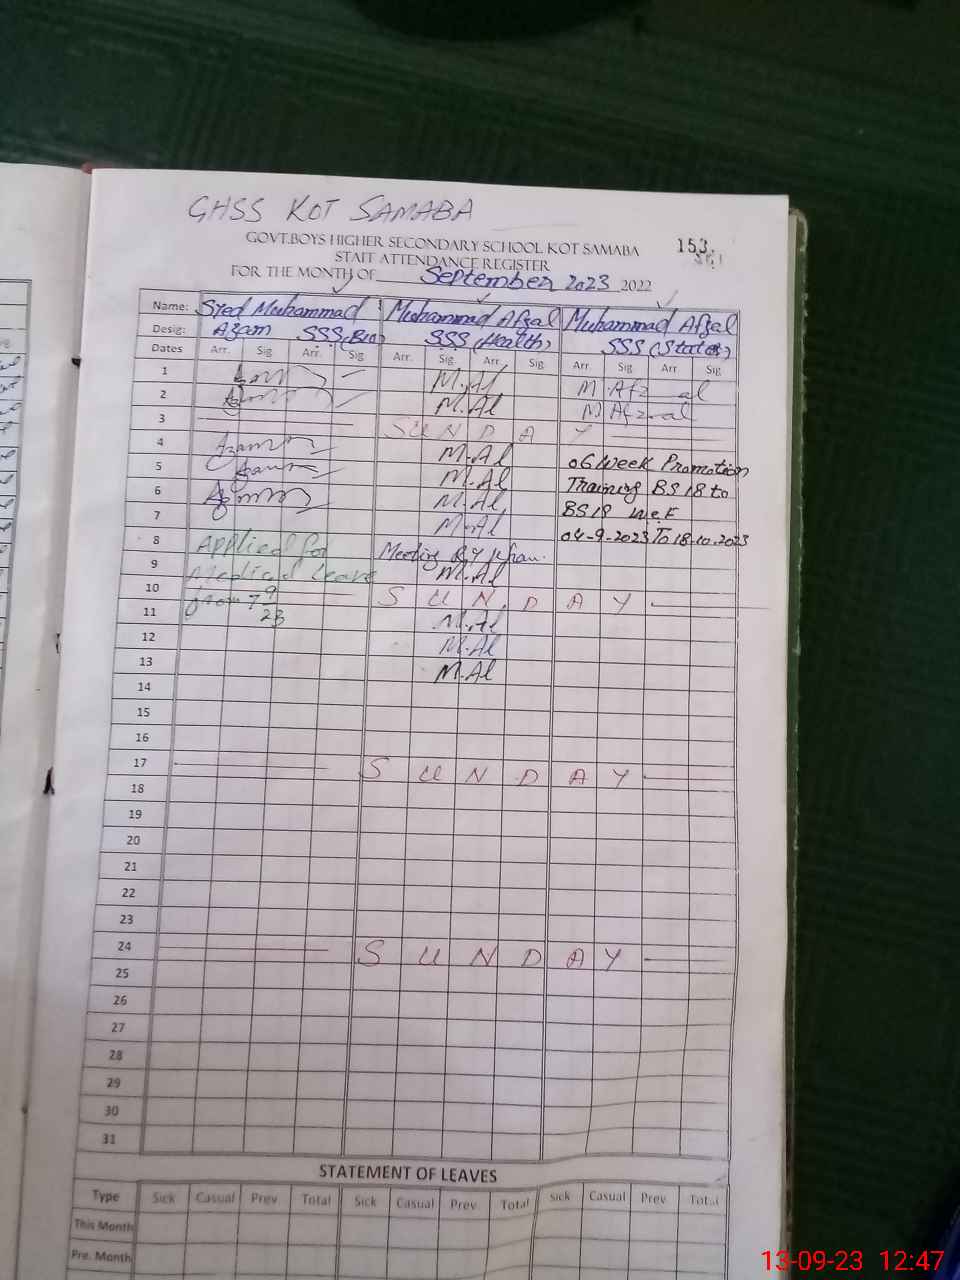 GHSS KOT SAMABA
153.
GOVT.BOYS HIGHER SECONDARY SCHOOL KOT SAMABA
STAFF ATTENDANCE REGISTER
FOR THE MONTH OF September 2023 2022
Name: Syed Muhammad Muhammad Afzal Muhammad Afzal
Desig: Azam SSS(Bio) SSS (Health) SSS (Stat)
Dates Arr. Sig Arr. Sig Arr. Sig. Arr. Sig Arr. Sig Arr. Sig
1 M.Al M.Afzal
2 M.Al M.Afzal
3 SUNDAY
4 Azam M.Al 06 Week Promotion
5 Azam M.Al Training BS 18 to
6 M.Al BS 19 w.e.f
7 M.Al 04-9-2023 To 18.10.2023
8 Applied for Meeting
9 Medical Leave M.Al
10 from 7 9 SUNDAY
11 23 M.Al
12 M.Al
13 M.Al
14
15
16
17 SUNDAY
18
19
20
21
22
23
24 SUNDAY
25
26
27
28
29
30
31
STATEMENT OF LEAVES
Type Sick Casual Prev. Total Sick Casual Prev. Total Sick Casual Prev. Total
This Month
Pre. Month
13-09-23 12:47